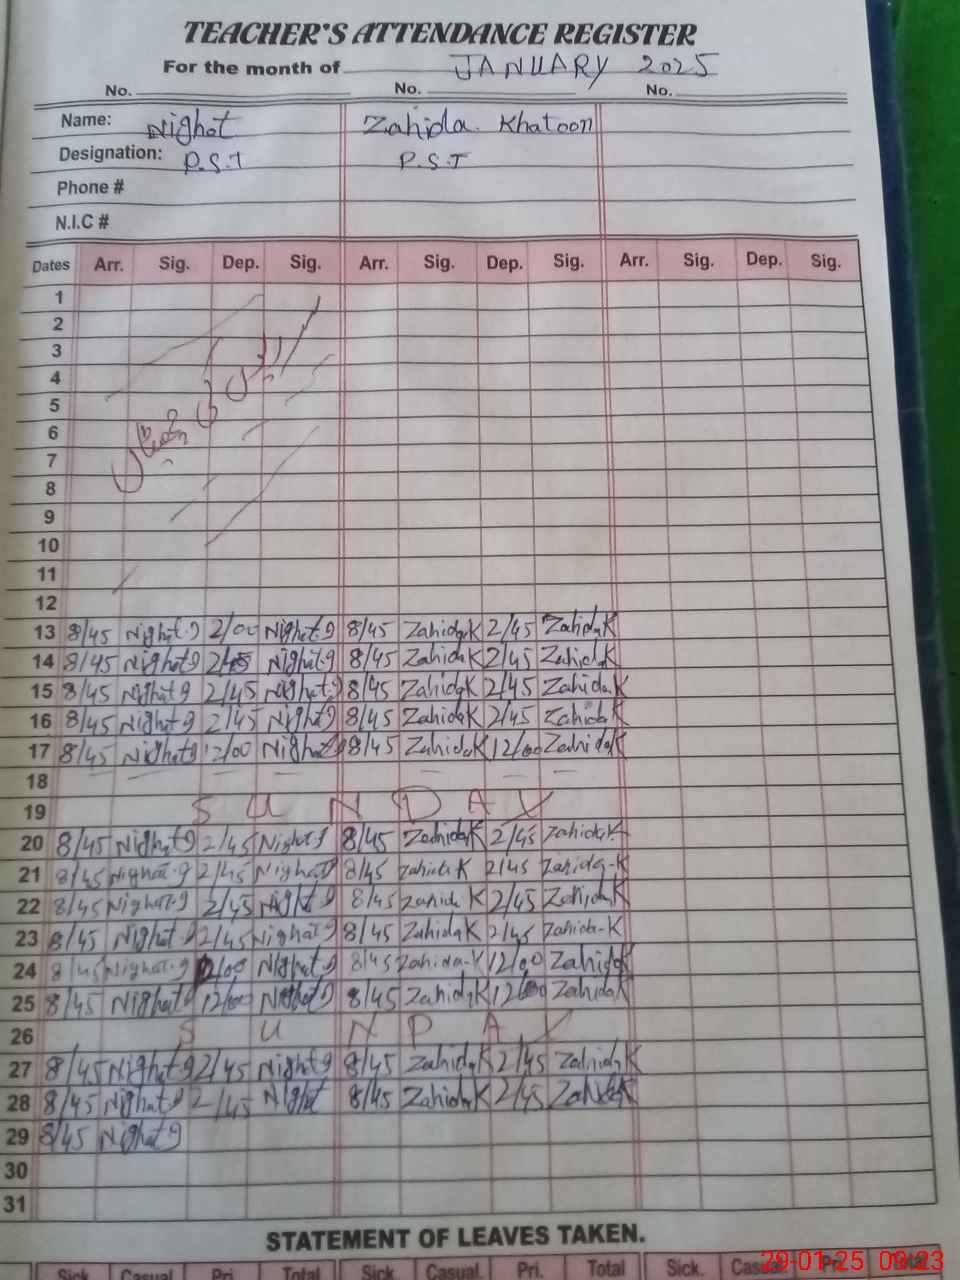 TEACHER'S ATTENDANCE REGISTER
For the month of JANUARY 2025
No. No. No.
Name: Nighat Zahida. Khatoon
Designation: P.S.T P.S.T
Phone #
N.I.C #
Dates Arr. Sig. Dep. Sig. Arr. Sig. Dep. Sig. Arr. Sig. Dep. Sig.
1
2
3
4
5
6
7
8
9
10
11
12
13 8/45 Nighat.g 2/00 Nighat.g 8/45 ZahidaK 2/45 ZahidaK
14 8/45 Nighat.g 2/45 Nighat.g 8/45 ZahidaK 2/45 ZahidaK
15 8/45 Nighat g 2/45 Nighat.g 8/45 ZahidaK 2/45 Zahida.K
16 8/45 Nighat g 2/45 Nighat g 8/45 ZahidaK 2/45 ZahidaK
17 8/45 Nighat g 12/00 Nighat g 8/45 ZahidaK 12/00 ZahidaK
18
19 SUNDAY
20 8/45 Nighat g 2/45 Nighat g 8/45 ZahidaK 2/45 Zahida.K
21 8/45 Nighat.g 2/45 Nighat g 8/45 Zahida K 2/45 Zahida-K
22 8/45 Nighat.g 2/45 Night g 8/45 Zahida K 2/45 ZahidaK
23 8/45 Nighat g 2/45 Nighat g 8/45 ZahidaK 2/45 Zahida-K
24 8/45 Nighat.g 12/00 Nighat.g 8/45 Zahida-K 12/00 ZahidaK
25 8/45 Nighat g 12/00 Nighat g 8/45 ZahidaK 12/00 ZahidaK
26 SUNDAY
27 8/45 Nighat g 2/45 Nighat g 8/45 ZahidaK 2/45 ZahidaK
28 8/45 Nighat g 2/45 Night 8/45 ZahidaK 2/45 ZahidaK
29 8/45 Nighat g
30
31
STATEMENT OF LEAVES TAKEN.
Sick. Casual Pri. Total Sick. Casual. Pri. Total Sick. Casual Pri. Total
29-01-25 09:23